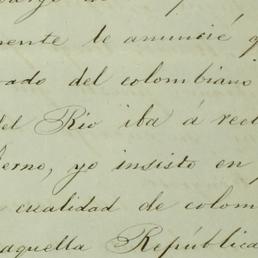 mente le anunció q
ado del colombiano
del Rio iba á rec
erno, yo insisto en
cualidad de colom
aquella República